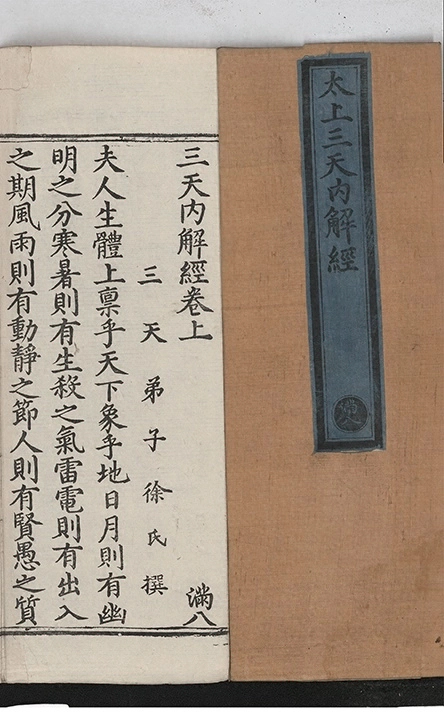 太上三天內解經
三天內解經卷上
滿八
三天弟子徐氏撰
夫人生體上禀乎天下象乎地日月則有幽
明之分寒暑則有生殺之氣雷電則有出入
之期風雨則有動靜之節人則有賢愚之質